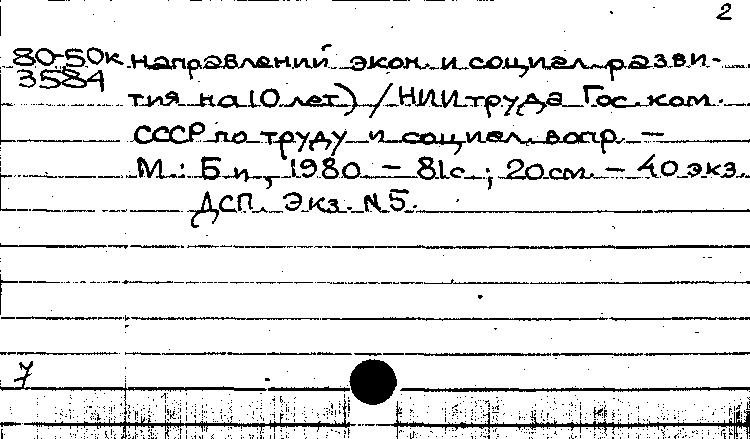 2
80-50к направлений экон. и социал. разви-
3584
тия на 10 лет) / НИИ труда Гос. ком.
СССР по труду и социал. вопр. –
М.: Б.и., 1980. – 81с.; 20см. – 40 экз.
ДСП. Экз. N5.
7